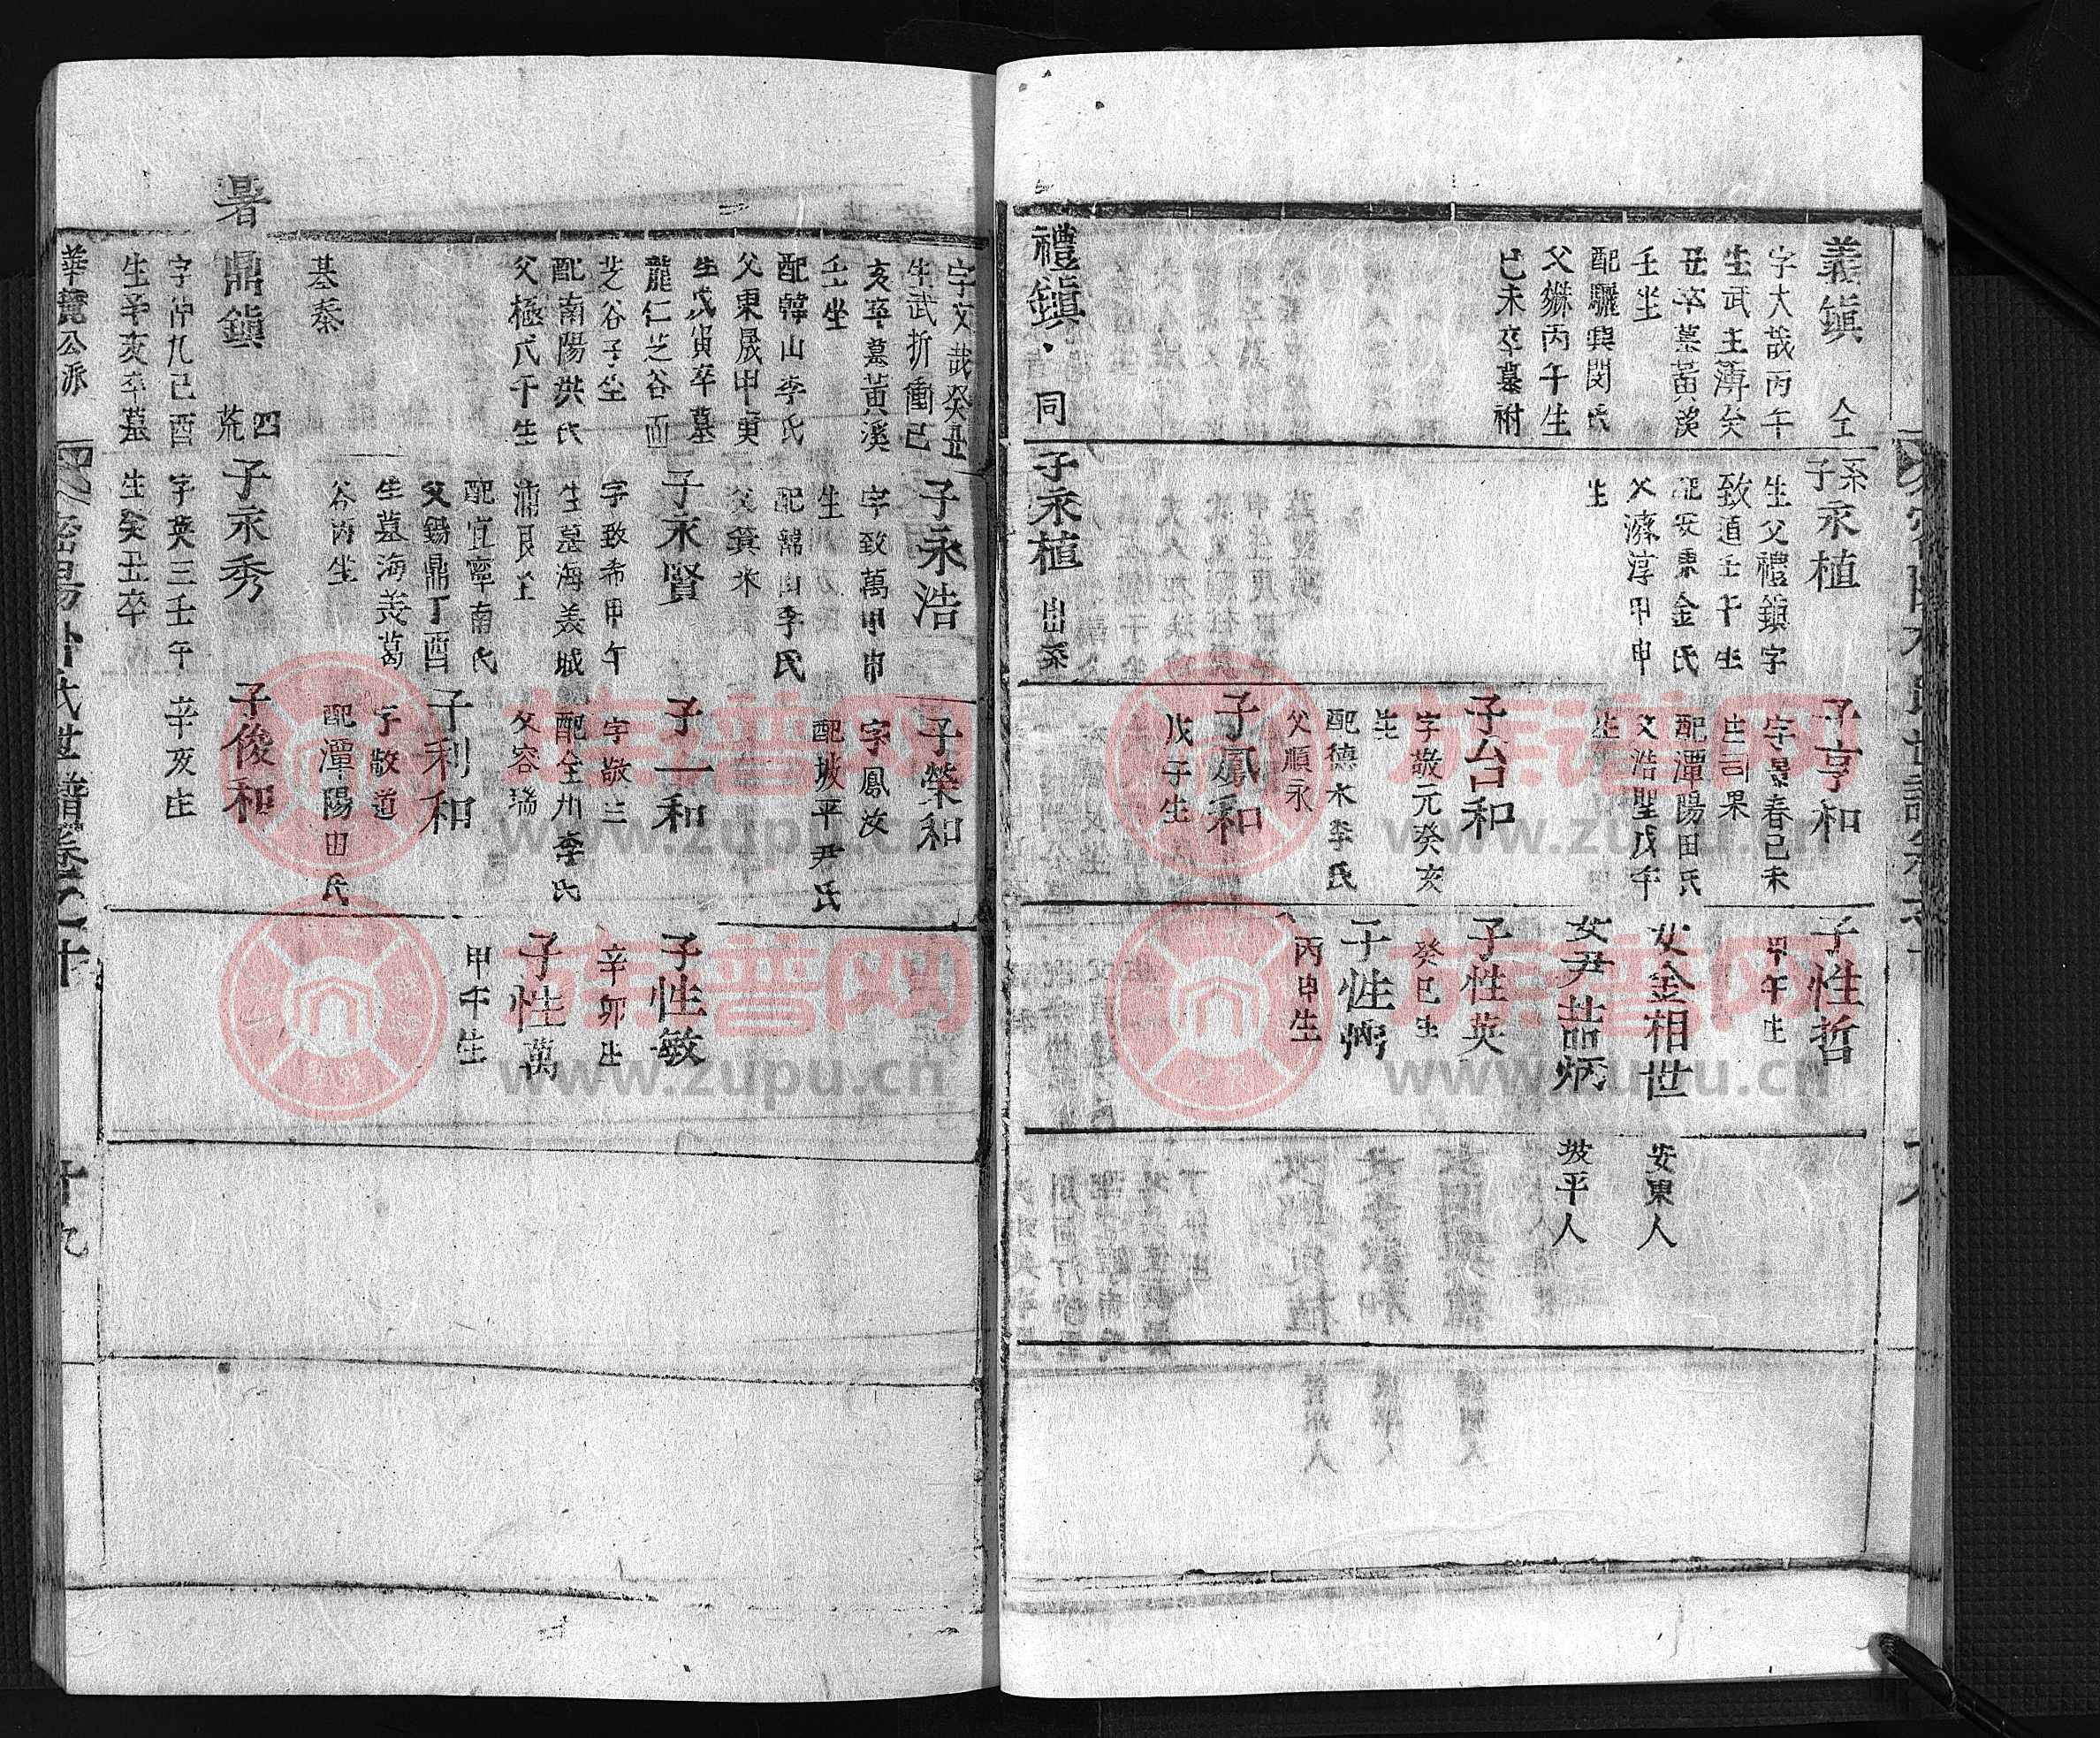 義鎭 仝
字大哉丙午
生武主簿癸
丑卒墓黃溪
壬坐
配驪興閔氏
父
丙午生
己未卒墓祔
禮鎭 同
系
子永植
生父禮鎭字
致道壬午生
配安東金氏
淳甲申
生
子永植 出系
子亨和
字景春己未
生司果
配潭陽田氏
父浩聖戊午
生
子台和
字敬元癸亥
生
配德水李氏
父順永
子鳳和
戊子生
子性哲
甲午生
女金相世 安東人
女尹喆炳 坡平人
子性英
癸巳生
子性弼
丙申生
字文哉癸丑
生武折衝己
亥卒墓黃溪
壬坐
配韓山李氏
父東晟甲寅
生戊寅卒墓
龍仁芝谷面
芝谷子坐
配南陽洪氏
父極戊午生
基泰
子永浩
字致萬甲申
生
配韓山李氏
子永賢
字致希甲午
生墓海美城
浦艮坐
配宜寧南氏
父錫鼎丁酉
生墓海美葛
谷丙坐
子榮和
字鳳汝
配坡平尹氏
子一和
字敬三
配全州李氏
父容瑞
子利和
字敬道
配潭陽田氏
子性敏
辛卯生
子性萬
甲午生
暑 鼎鎭 四 荒
字仲九己酉
生辛亥卒墓
子永秀
字英三壬午
生癸丑卒
子俊和
辛亥生
派
密陽朴氏世譜卷之十
十九
族谱网
www.zupu.cn
族谱网
www.zupu.cn
族谱网
www.zupu.cn
族谱网
www.zupu.cn